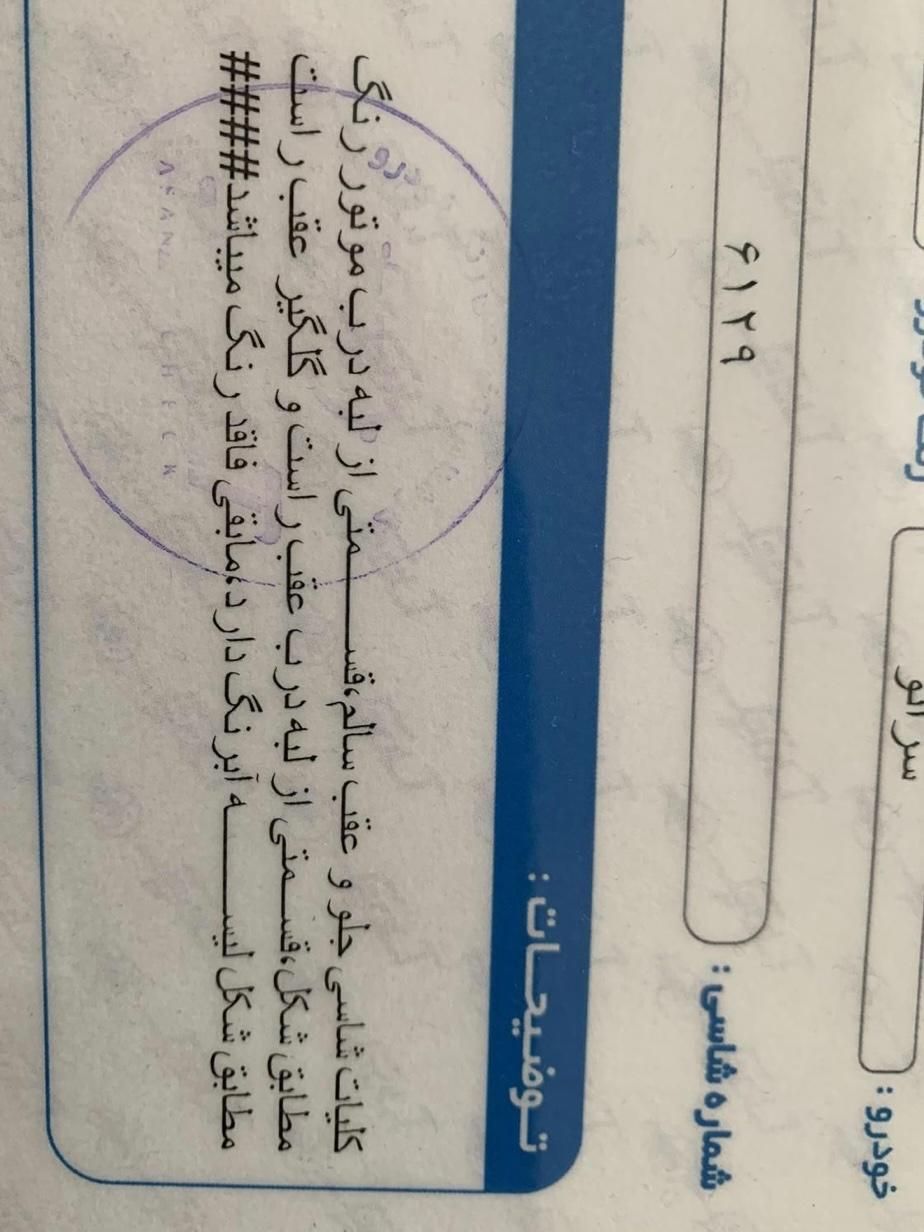 خودرو : سراتو
شماره شاسی : ۶۱۲۹
توضیحات :
کلیات شاسی جلو و عقب سالم،قسمتی از لبه درب موتور رنگ
مطابق شکل،قسمتی از لبه درب عقب راست و گلگیر عقب راست
مطابق شکل لیسه آبرنگ دارد،مابقی فاقد رنگ میباشد####
CHECK